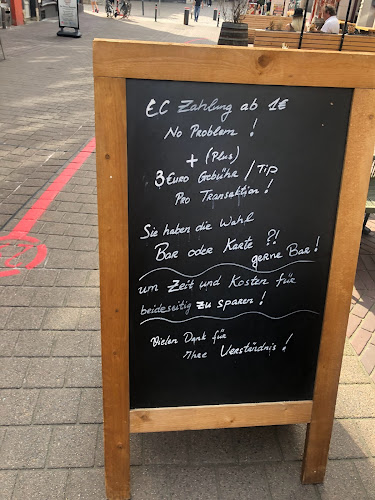 EC Zahlung ab 1€
No Problem !
+ (Plus)
3 €uro Gebühr / Tip
Pro Transaktion !
Sie haben die Wahl
Bar oder Karte ?!
gerne Bar !
um Zeit und Kosten für
beidseitig zu sparen !
Vielen Dank für
Ihre Verständnis !